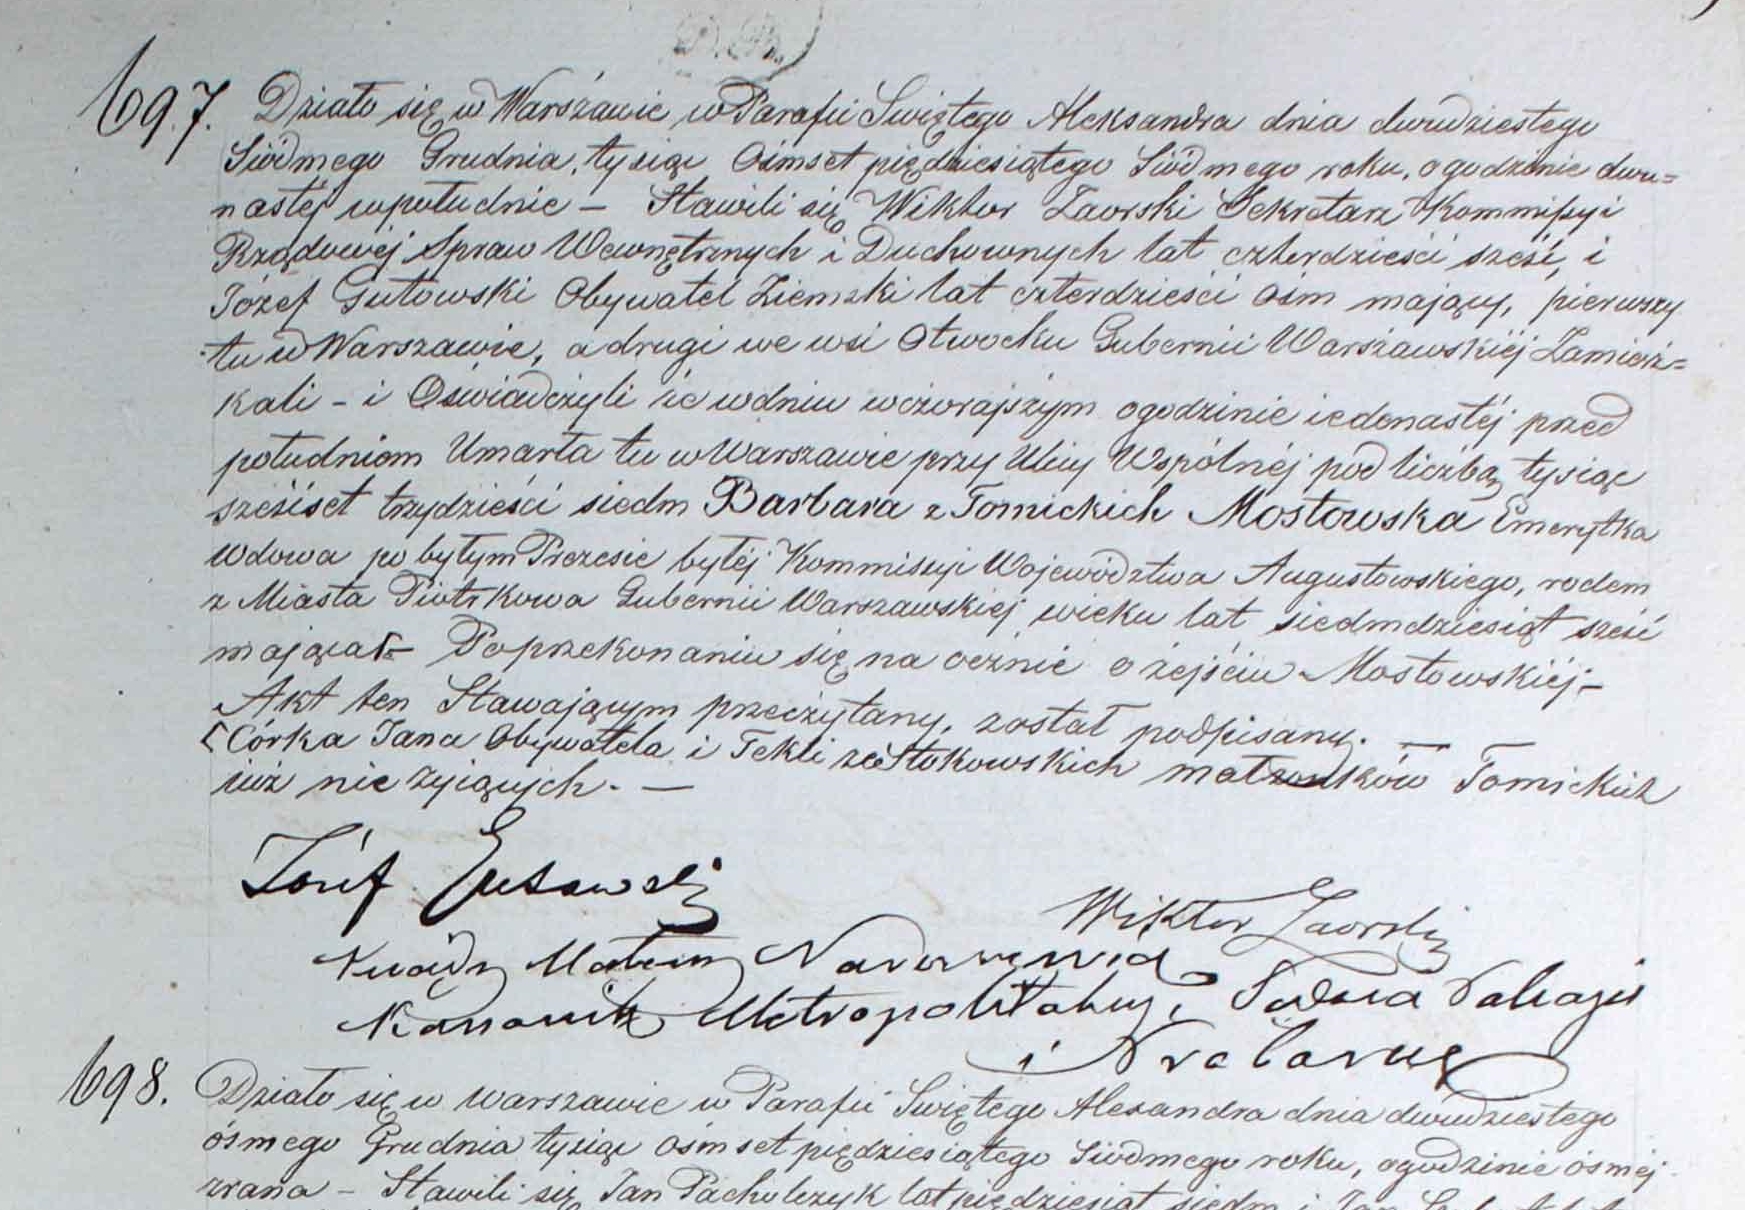 697. Działo się w Warszawie w Parafii Swiętego Aleksandra dnia dwudziestego
Siódmego Grudnia, tysiąc Ośmset pięćdziesiątego Siódmego roku, o godzinie dwu=
nastéj w południe – Stawili się Wiktor Zaorski Sekretarz Kommissyi
Rządowéj Spraw Wewnętrznych i Duchownych lat czterdzieści sześć, i
Józef Gutowski Obywatel Ziemski lat czterdzieści ośm mający, pierwszy
tu w Warszawie, a drugi we wsi Otwocku Gubernii Warszawskiéj Zamiesz=
kali – i Oświadczyli że w dniu wczorajszym o godzinie iedenastéj przed
południem Umarła tu w Warszawie przy Ulicy Wspólnéj pod liczbą tysiąc
sześćset trzydzieści siedm Barbara z Tomickich Mostowska Emerytka
wdowa po byłym Prezesie byłéj Kommissyi Województwa Augustowskiego, rodem
z Miasta Piotrkowa Gubernii Warszawskiéj wieku lat siedmdziesiąt sześć
mająca – Po przekonaniu się na ocznie o zejściu Mostowskiéj –
Akt ten Stawającym przeczytany, został podpisany. —
Córka Jana Obywatela i Tekli ze Stokowskich małżonków Tomickich
iuż nie żyiących. —
Józef Gutowski
Wiktor Zaorski
Kanonik Metropolitalny,
698. Działo się w Warszawie w Parafii Swiętego Alexandra dnia dwudziestego
ósmego Grudnia tysiąc ośmset pięćdziesiątego Siódmego roku, o godzinie ósméj
zrana – Stawili się Jan Pacholczyk lat pięćdziesiąt siedm i Jan